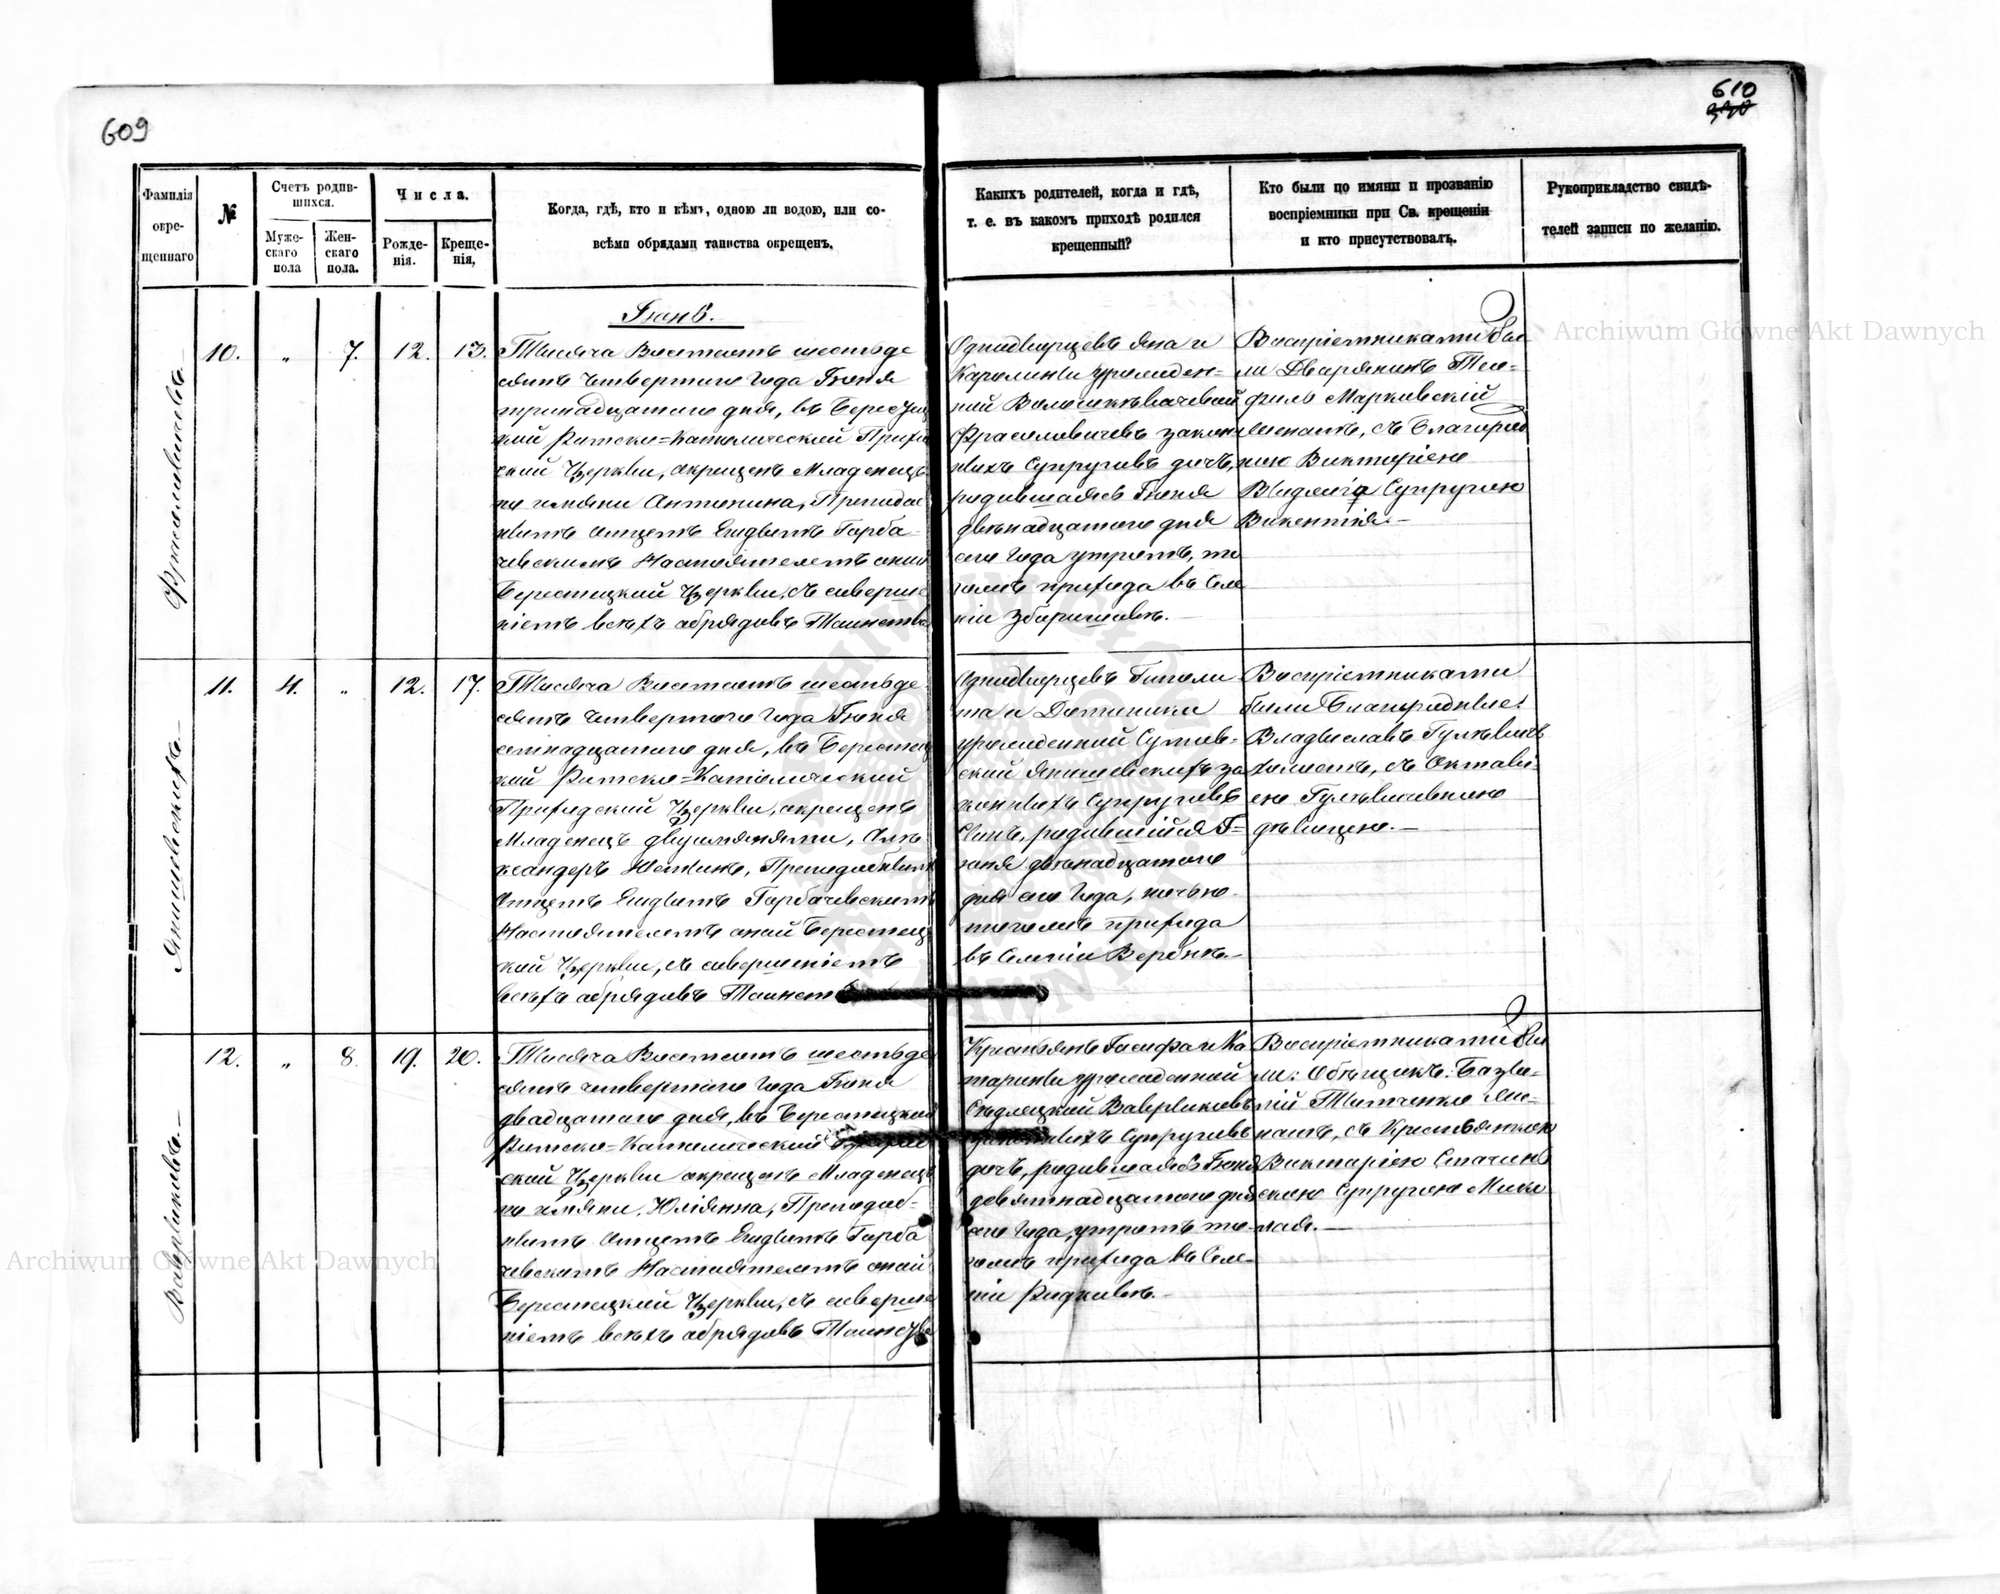 609
610
Фамилія окре- щеннаго
№
Счетъ родив- шихся.
Муже- скаго пола
Жен- скаго пола.
Числа.
Рожде- нія.
Креще- нія,
Когда, гдѣ, кто и кѣмъ, одною ли водою, или со-
всѣми обрядами таинства окрещенъ.
Какихъ родителей, когда и гдѣ,
т. е. въ какомъ приходѣ родился
крещенный?
Кто были по имяни и прозванію
воспріемники при Св. крещеніи
и кто присутствовалъ.
Рукоприкладство свидѣ-
телей записи по желанію.
Іюнь.
10. „ 7. 12. 13.
Тысяча Восемсотъ шестьде
сятъ четвертаго Года Іюня
тринадцатаго дня, въ Берестец
кой Римско=Католической Прихо
ской Церкви, окрещенъ Младенецъ
по имяни Антонина, Преподоб
нымъ Отцемъ Гарба-
чевскимъ Настоятелемъ оной
Берестецкой Церкви, съ соверше
ніемъ всѣхъ обрядовъ Таинства
Однодворцевъ Яна и
Каролины урожден-
ной
законн
ныхъ Супруговъ дочь,
родившаяся Іюня
двѣнадцатаго дня
сего Года утромъ, то
гожъ прихода въ Селе
ніи Збаришовкѣ.
Воспріемниками бы
ли Дворянинъ Тео-
филь Марковскій
съ Благород
ною Викторіею
Супругою
Викентія.—
Янишевскихъ
11. 4. „ 12. 17.
Тысяча Восемсотъ шестьде
сятъ четвертаго Года Іюня
семнадцатаго дня, въ Берестец
кой Римско=Католической
Приходской Церкви, окрещенъ
Младенецъ двуимянями, Алѣ
ксандеръ Юстинъ, Преподобнымъ
Отцемъ Гарбачевскимъ
Настоятелемъ оной Берестец
кой Церкви, съ совершеніемъ
всѣхъ обрядовъ Таинст
Однодворцевъ Гиполи
та и Доминики
урожденной
Янишевскихъ за
конныхъ Супруговъ
Сынъ, родившійся І=
юня двѣнадцатаго
дня сего Года, ночью
тогожъ прихода
въ Селеніи Вербнѣ.—
Воспріемниками
были Благородные:
Владыславъ Гулѣвичъ
холостъ, съ Октаві-
ею Гулѣвичовною
дѣвицею.—
12. „ 8. 19. 20.
Тысяча Восемсотъ шестьде
сятъ четвертаго Года Іюня
двадцатаго дня, въ Берестецкой
Римско=Католической
ской Церкви окрещенъ Младенецъ
по имяни Юліянна, Преподоб-
нымъ Отцемъ Гарба
чевскимъ Настоятелемъ оной
Берестецкой Церкви, съ соверше
ніемъ всѣхъ обрядовъ Таинства
Крестьянъ Іосифа и Ка
тарины урожденной
законныхъ Супруговъ
дочь, родившаяся Іюня
девятнадцатаго дня
сего Года, утромъ то-
гожъ прихода въ Селе-
ніи
Воспріемниками бы
ли:
съ Крестьянкою
Викторіею
Супругою Мико
лая.—
Archiwum Główne Akt Dawnych
Archiwum Główne Akt Dawnych